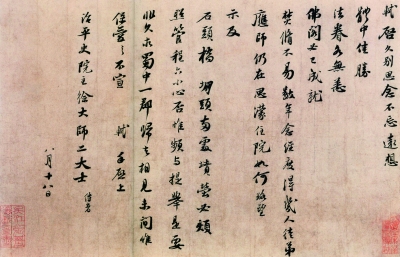 軾啓久别思念不忘遠想
體中佳勝
法眷各無恙
佛閣必已成就
焚脩不易數年念經度得幾人徒弟
應師仍在思濛住院如何略望
示及
石頭橋 堋頭兩處墳塋必煩
照管程六小心否惟頻與提舉是要
非久求蜀中一郡歸去相見未間惟
保愛之不宣 軾手啓上
治平史院主徐大師二大士 侍者
八月十八日